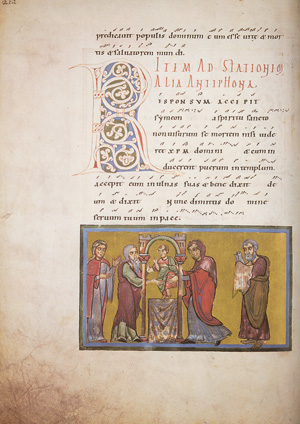 predicavit populis dominum eum esse vite & mor
tis & salvatorem mundi
ITEM AD STATIONEM
ALIA ANTIPHONA
RESPONSUM ACCEPIT
symeon a spiritu sancto
non visurum se mortem nisi vide
ret XPM domini & cum in
ducerent puerum in templum
accepit eum in ulnas suas & benedixit de
um & dixit Nunc dimittis domine
servum tuum in pace